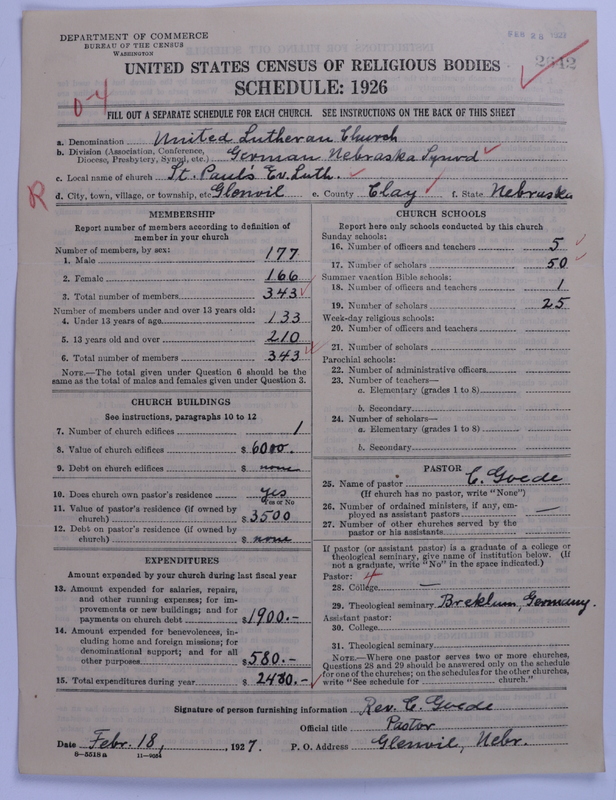 DEPARTMENT OF COMMERCE
BUREAU OF THE CENSUS
WASHINGTON
FEB 28 1927
2642
UNITED STATES CENSUS OF RELIGIOUS BODIES
SCHEDULE: 1926
0-4
FILL OUT A SEPARATE SCHEDULE FOR EACH CHURCH. SEE INSTRUCTIONS ON THE BACK OF THIS SHEET
a. Denomination United Lutheran Church
b. Division (Association, Conference, Diocese, Presbytery, Synod, etc.) German Nebraska Synod
c. Local name of church St. Paul's Ev. Luth.
R
d. City, town, village, or township, etc. Glenvil e. County Clay f. State Nebraska
MEMBERSHIP
Report number of members according to definition of
member in your church
Number of members, by sex:
1. Male 177
2. Female 166
3. Total number of members 343
Number of members under and over 13 years old:
4. Under 13 years of age 133
5. 13 years old and over 210
6. Total number of members 343
NOTE.—The total given under Question 6 should be the
same as the total of males and females given under Question 3.
CHURCH BUILDINGS
See instructions, paragraphs 10 to 12
7. Number of church edifices 1
8. Value of church edifices $ 6000.
9. Debt on church edifices $ none
10. Does church own pastor's residence yes
Yes or No
11. Value of pastor's residence (if owned by
church) $ 3500
12. Debt on pastor's residence (if owned by
church) $ none
EXPENDITURES
Amount expended by your church during last fiscal year
13. Amount expended for salaries, repairs,
and other running expenses; for im-
provements or new buildings; and for
payments on church debt $ 1900.-
14. Amount expended for benevolences, in-
cluding home and foreign missions; for
denominational support; and for all
other purposes $ 580.-
15. Total expenditures during year $ 2480.-
CHURCH SCHOOLS
Report here only schools conducted by this church
Sunday schools:
16. Number of officers and teachers 5
17. Number of scholars 50
Summer vacation Bible schools:
18. Number of officers and teachers 1
19. Number of scholars 25
Week-day religious schools:
20. Number of officers and teachers
21. Number of scholars
Parochial schools:
22. Number of administrative officers
23. Number of teachers—
a. Elementary (grades 1 to 8)
b. Secondary
24. Number of scholars—
a. Elementary (grades 1 to 8)
b. Secondary
PASTOR
25. Name of pastor C. Goede
(If church has no pastor, write "None")
26. Number of ordained ministers, if any, em-
ployed as assistant pastors —
27. Number of other churches served by the
pastor or his assistants
If pastor (or assistant pastor) is a graduate of a college or
theological seminary, give name of institution below. (If
not a graduate, write "No" in the space indicated.)
Pastor: 4
28. College —
29. Theological seminary Breklum, Germany.
Assistant pastor:
30. College
31. Theological seminary
NOTE.—Where one pastor serves two or more churches,
Questions 28 and 29 should be answered only on the schedule
for one of the churches; on the schedules for the other churches,
write "See schedule for church."
Signature of person furnishing information Rev. C. Goede
Official title Pastor
Date Febr. 18, 1927. P. O. Address Glenvil, Nebr.
8-5518a 11-9034